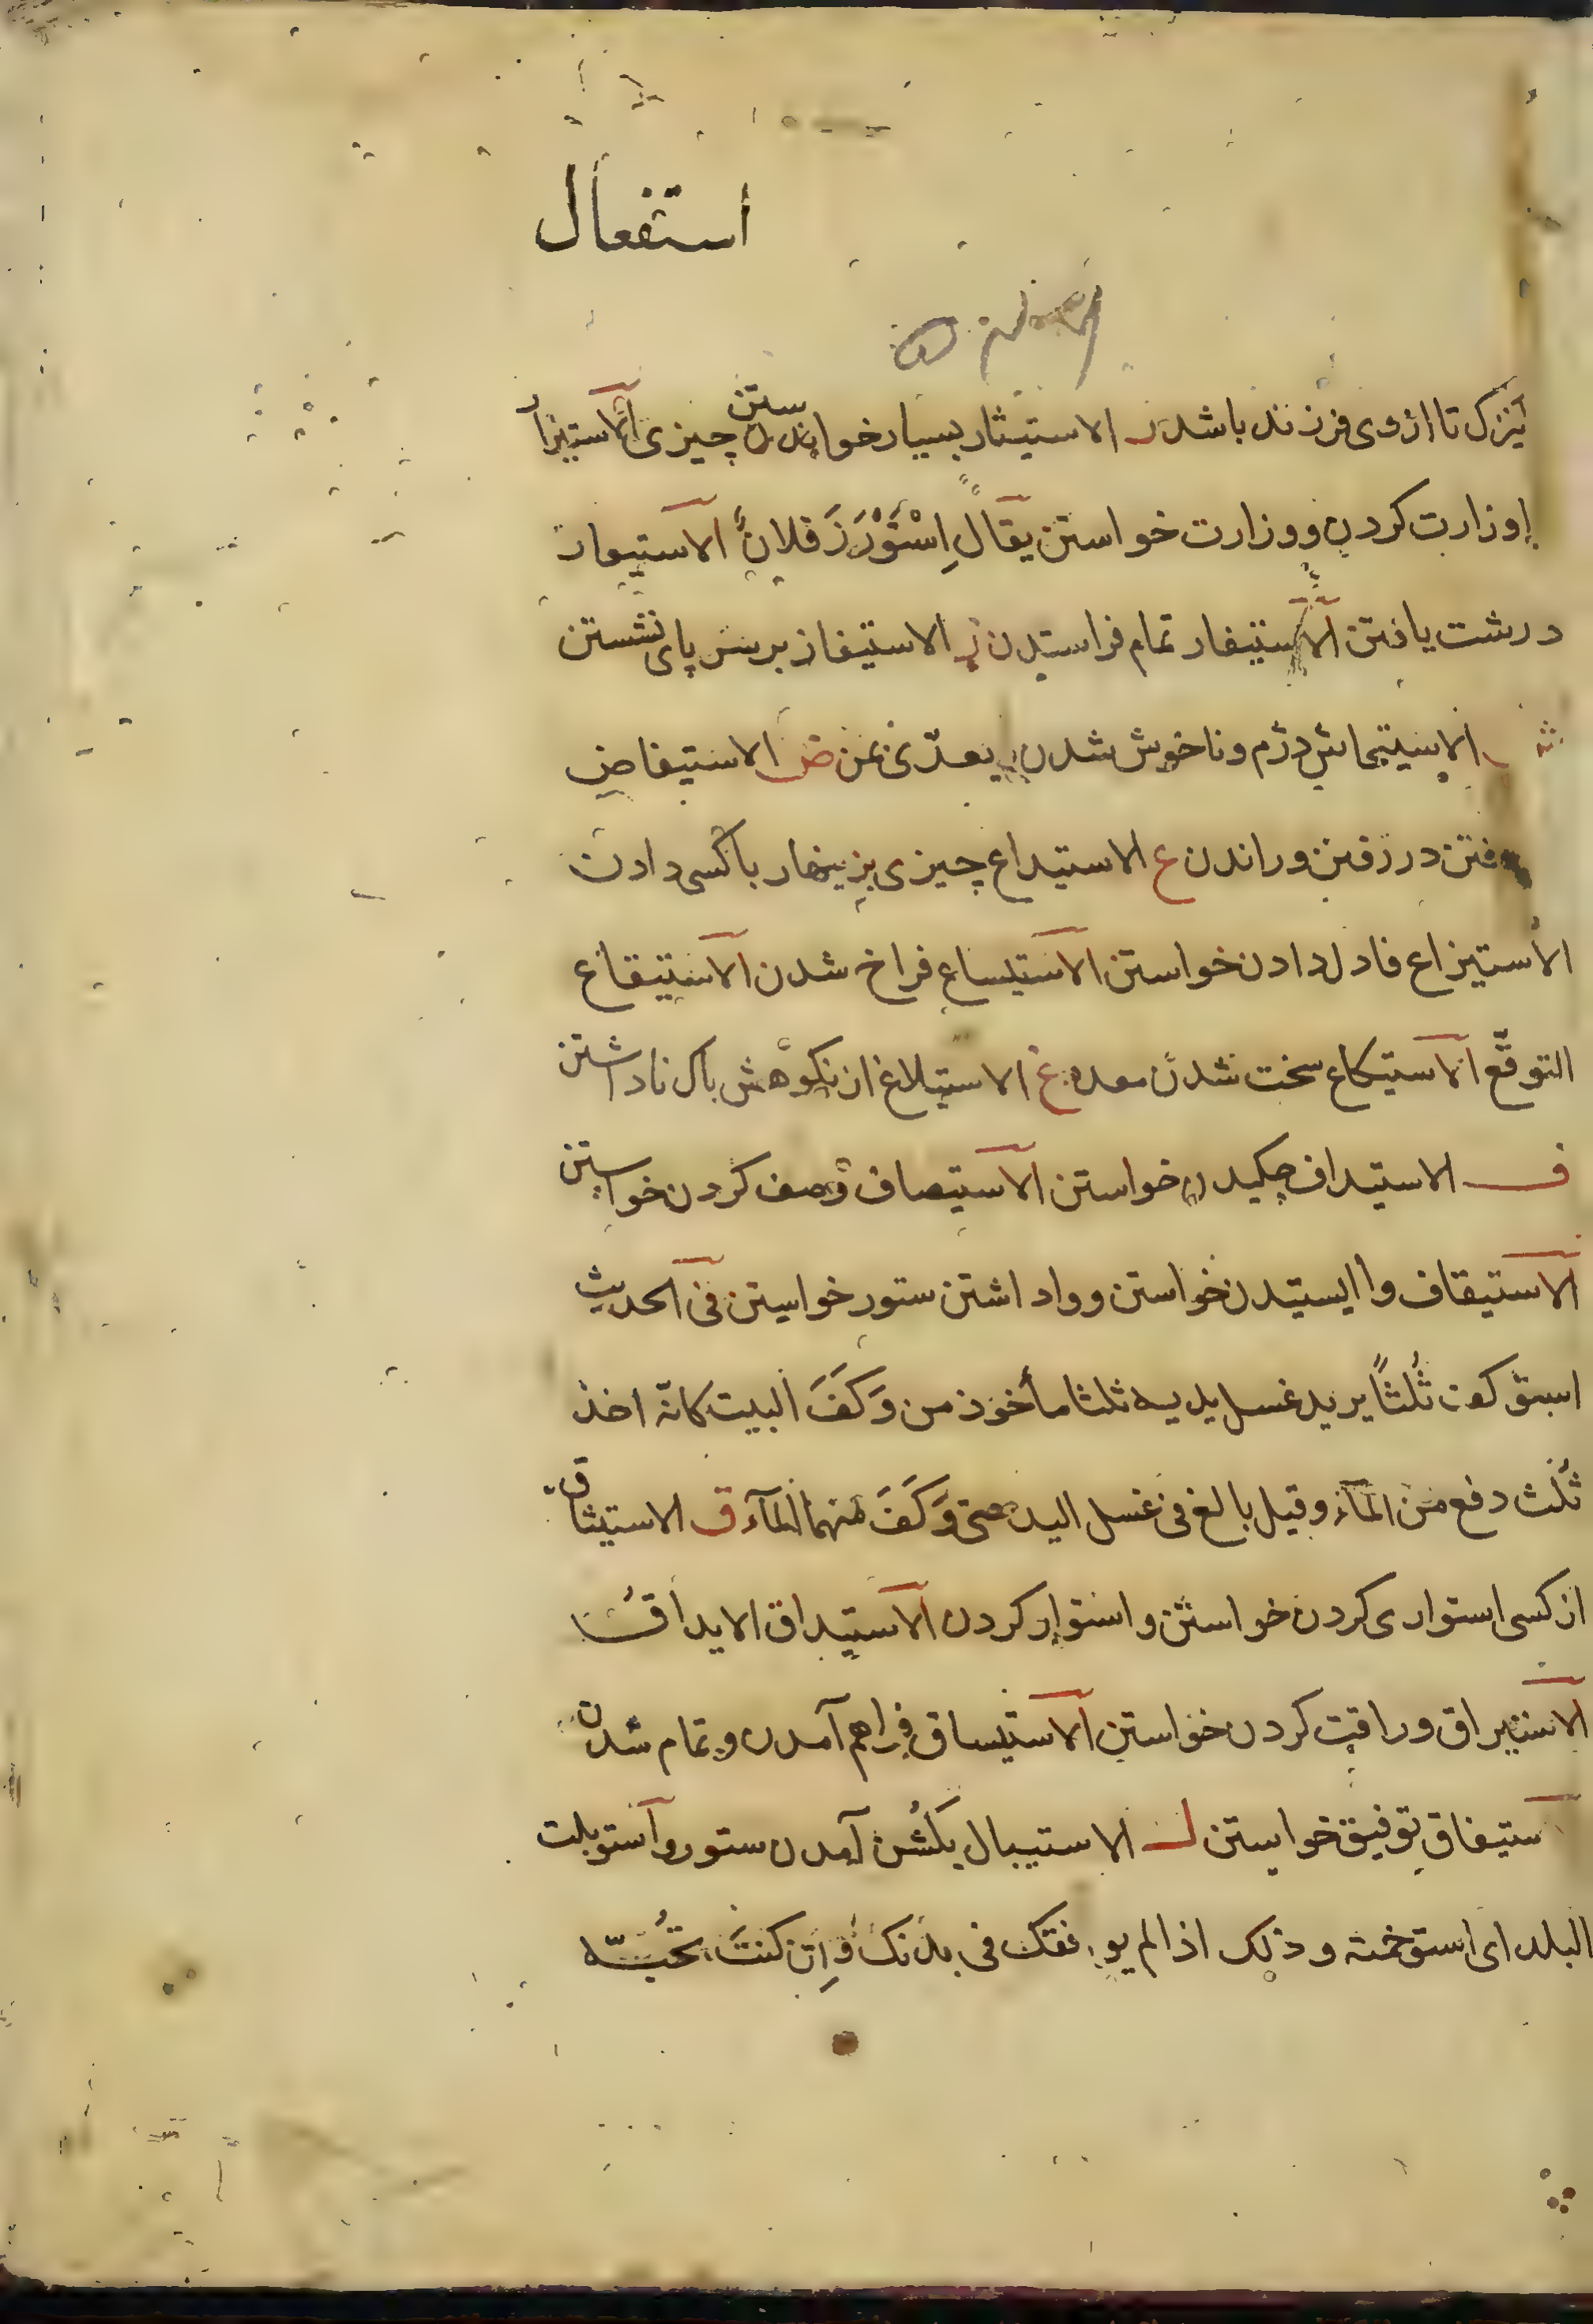 استفعال
نیزک تا ازوی فرزند باشدش ر الاستیثار بسیار خواستن چیزی الاستیزار
وزارت کردن و وزارت خواستن یقال اِسْتَوْزَرَ فلانٌ الاستیعار
درشت یافتن الاستیفار تمام فراستدن ز الاستیفاز بر سر پای نشستن
الاستیحاش دژم و ناخوش شدن یعدّی بمن ض الاستیفاض
رفتن در رفتن و راندن ع الاستیداع چیزی بزینهار باکسی دادن
الاستیزاع فادل دادن خواستن الاستیساع فراخ شدن الاستیقاع
التوقّع الاستیکاع سخت شدن معده غ الاستیلاغ از نکوهش باک ناداشتن
ف الاستیداف چکیدن خواستن الاستیصاف وصف کردن خواستن
الاستیقاف وا ایستیدن خواستن و واداشتن ستور خواستن فی الحدیث
استوکف ثُلثًا یرید غسل یدیه ثلثا مأخوذ من وَکَفَ البیت کانّه اخذ
ثُلث دفع من المآء و قیل بالغ فی غسل الید حتی وَکَفَ منهما المآء ق الاستیثاق
از کسی استواری کردن خواستن و استوار کردن الاستیداق الایداق
الاستیراق وراقت کردن خواستن الاستیساق فراهم آمدن و تمام شدن
ستیفاق توفیق خواستن ل الاستیبال بکُشن آمدن ستور و استوبلت
البلد ای استوخمته و ذلک اذا لم یوافقک فی بدنک وَاِن کنتَ تحُبّه